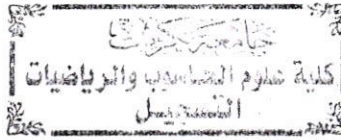 جامعة تكريت
كلية علوم الحاسوب والرياضيات